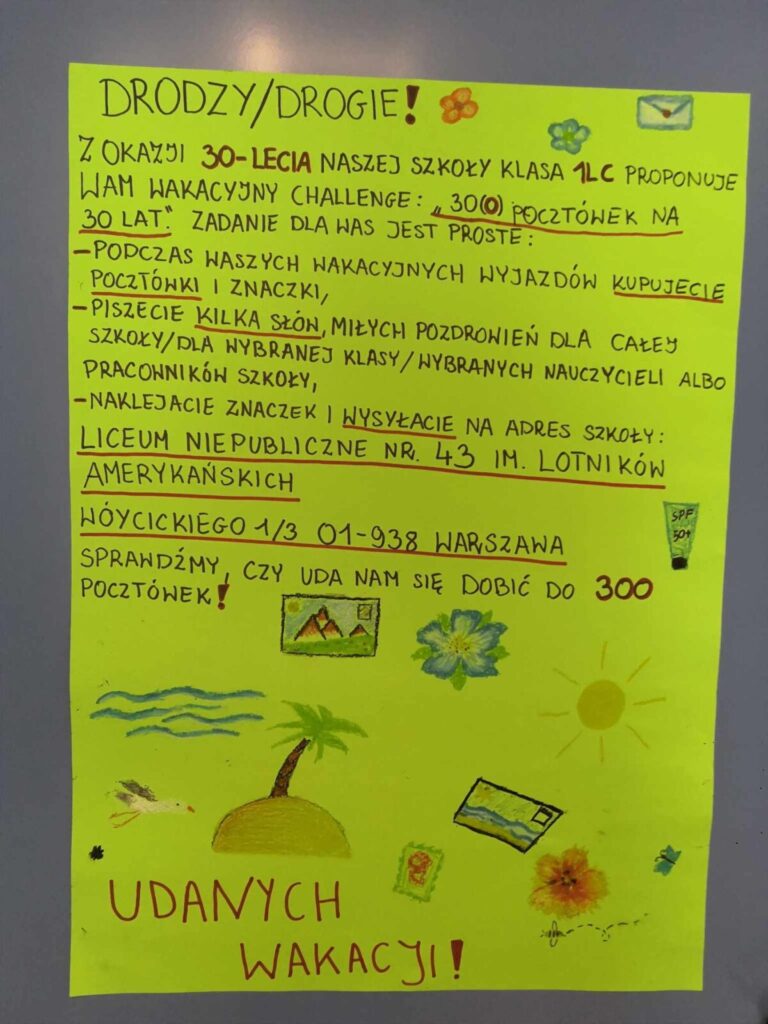 DRODZY/DROGIE!
Z OKAZJI 30-LECIA NASZEJ SZKOŁY KLASA 1LC PROPONUJE
WAM WAKACYJNY CHALLENGE: „30(0) POCZTÓWEK NA
30 LAT”. ZADANIE DLA WAS JEST PROSTE:
-PODCZAS WASZYCH WAKACYJNYCH WYJAZDÓW KUPUJECIE
POCZTÓWKI I ZNACZKI,
-PISZECIE KILKA SŁÓW, MIŁYCH POZDROWIEŃ DLA CAŁEJ
SZKOŁY/DLA WYBRANEJ KLASY/WYBRANYCH NAUCZYCIELI ALBO
PRACOWNIKÓW SZKOŁY,
-NAKLEJACIE ZNACZEK I WYSYŁACIE NA ADRES SZKOŁY:
LICEUM NIEPUBLICZNE NR. 43 IM. LOTNIKÓW
AMERYKAŃSKICH
WÓYCICKIEGO 1/3 01-938 WARSZAWA
SPF
50+
SPRAWDŹMY, CZY UDA NAM SIĘ DOBIĆ DO 300
POCZTÓWEK!
UDANYCH
WAKACJI!